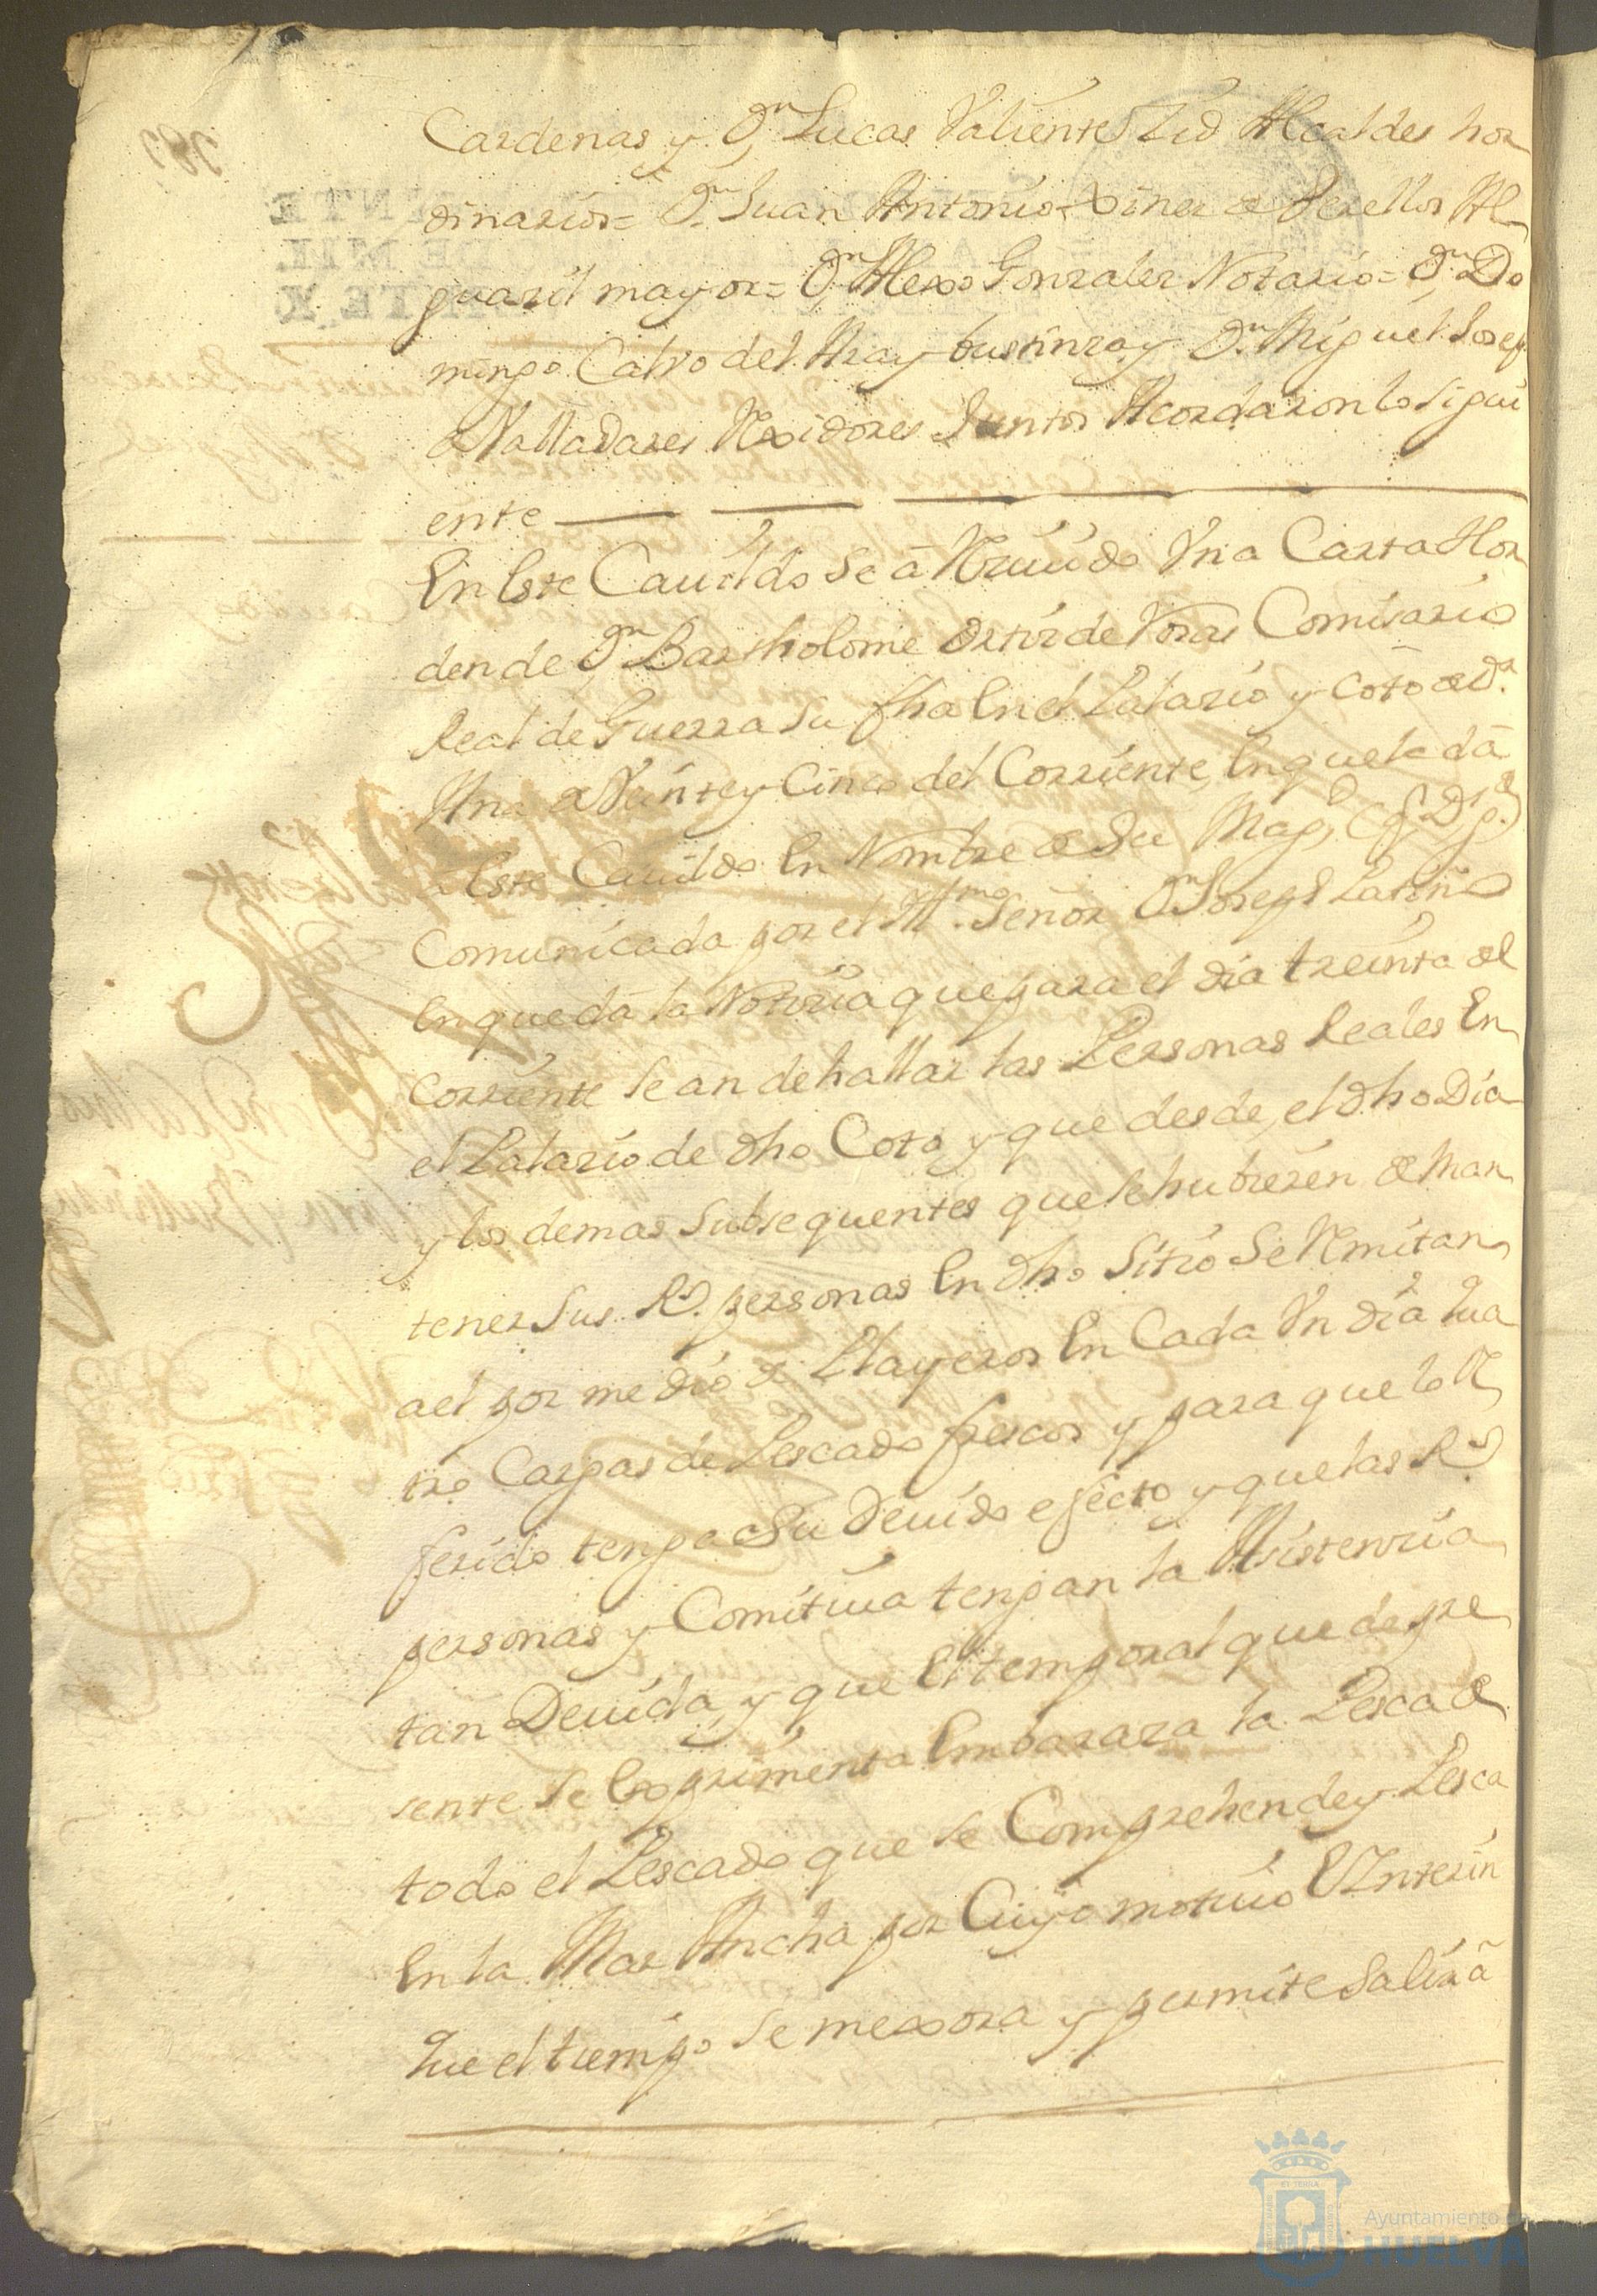 Cardenas y Dn Lucas Valiente Zid Alcaldes hor
dinarios= Dn Juan Antonio Xinez de Terellos Al
guazil mayor= Dn Alexo Gonzalez Notario= Dn Do
mingo Calvo del Hay bustinza y Dn Miguel Joseph
de Valladares Rexidores Juntos Acordaron lo sigui
ente
En Este Cauildo se á Reciuido Vna Carta Hor
den de Dn Bartholome Ortiz de Comisario
Real de Guerra su fha En el Palazio y coto de Da
Ana de Veinte y Cinco del Corriente, En que le dã
a Este Cauildo En Nombre de Su Magd (q D g.)
Comunicada por el Illmo Señor Dn Joseph Patiño
En que dã la Notizia que para el dia treinta del
corriente se an de hallar las Personas Reales En
el Palazio de dho Coto, y que desde el dho Dia
y los demas subsequentes que se hubieren de Man
tener sus Rs. personas En dho Sitio se Remitan
a el por medio de Playeros En Cada Vn dia qua
tro Cargas de Pescado frescos y para que lo Re
ferido tenga su Deuido efecto y que las Rs
personas y Comitiua tengan la Asistenzia
tan Deuida, y que El temporal que de pre
sente se Experimenta Embaraza la Pesca de
todo el Pescado que se Comprehende y Pesca
En la Mar Ancha por Cuyo motiuo E Ynterin
que el tiempo se mexora y permite salir ã
Ayuntamiento de
HUELVA